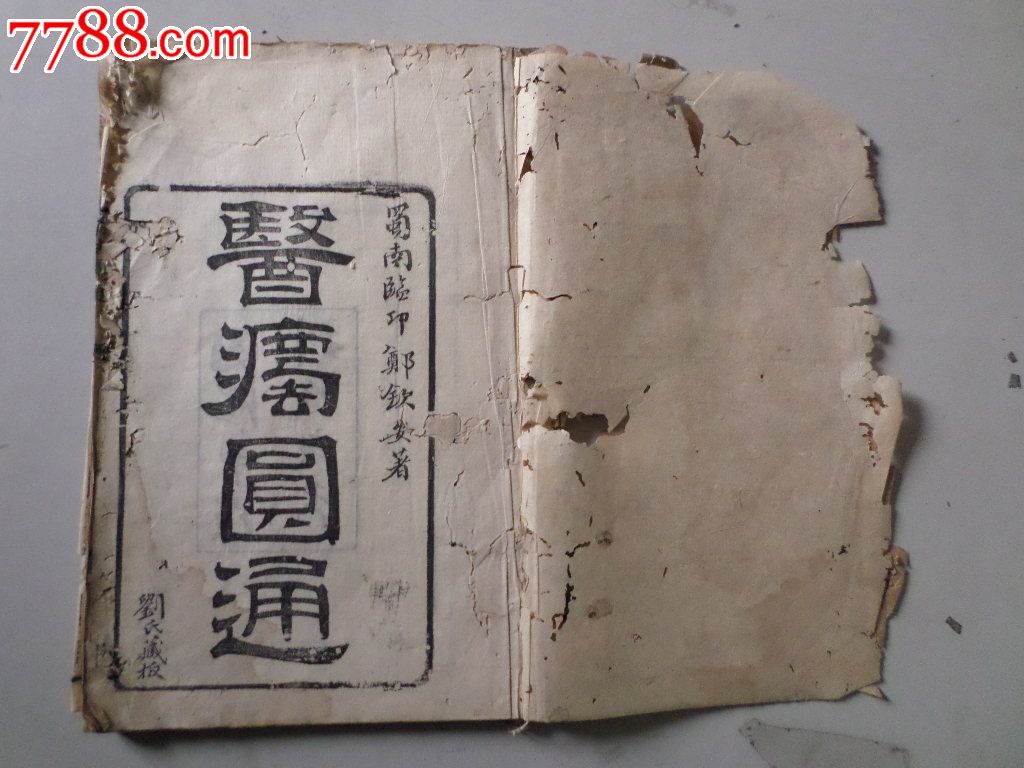 7788.com
蜀南臨邛鄭欽安著
醫
𤻲
圓
通
劉氏藏板